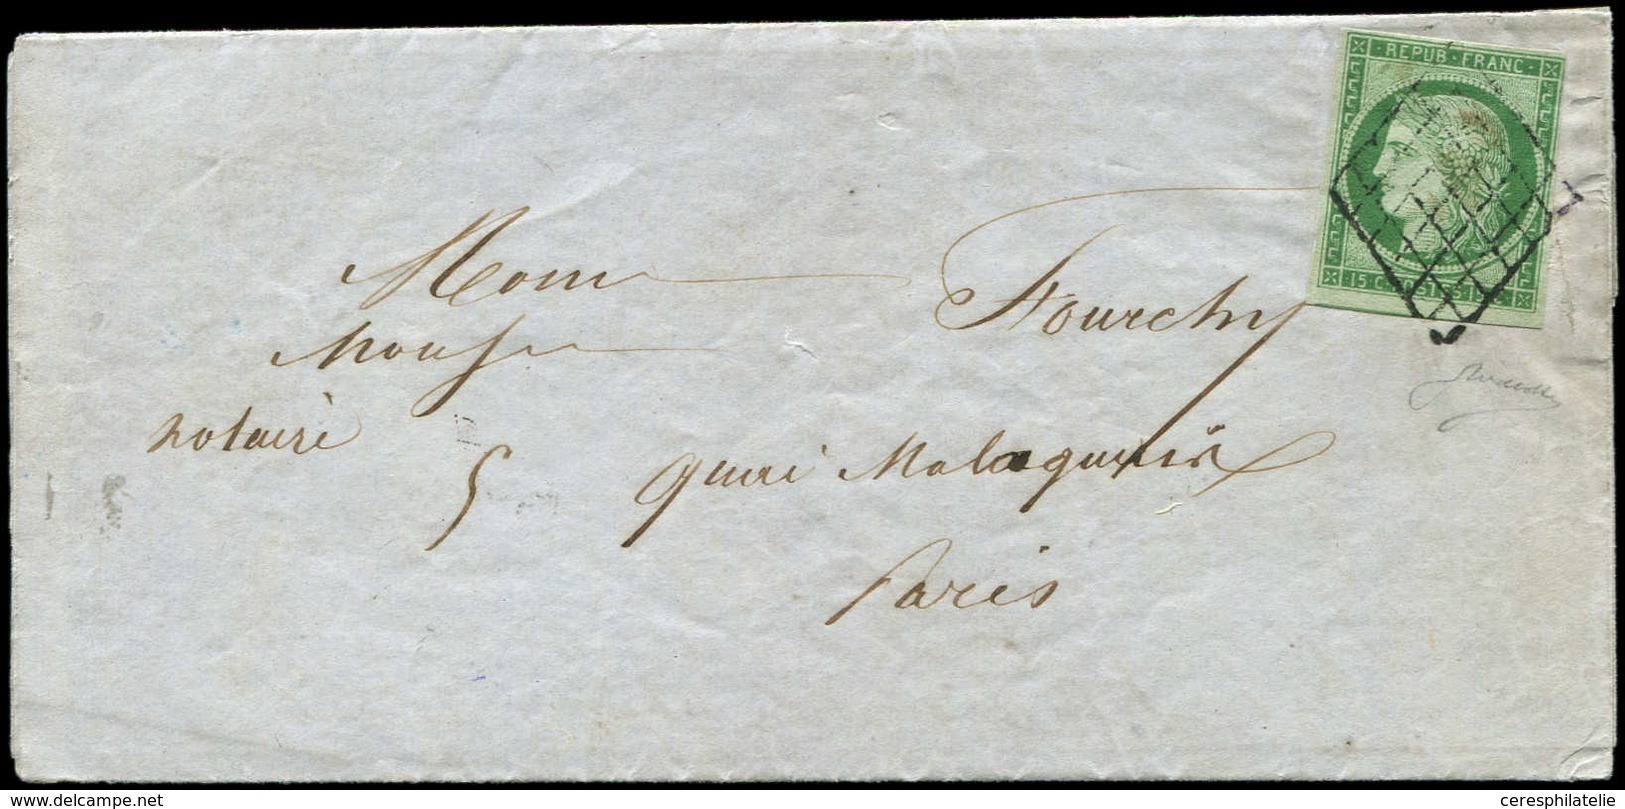 REPUB · FRANC ·
15 C. POSTES 15 C.
Mons
Fourchy
notaire
5 quai Malaquais
Paris
www.delcampe.net
ceresphilatelie